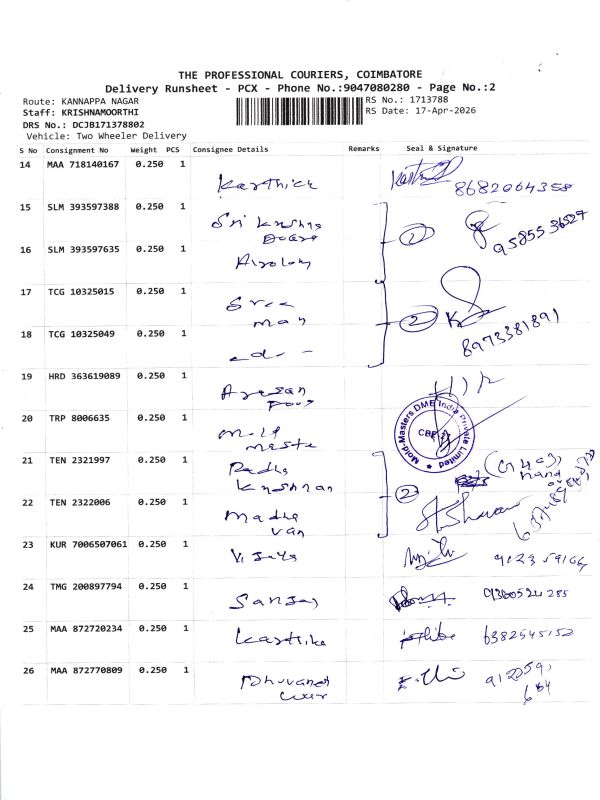 THE PROFESSIONAL COURIERS, COIMBATORE
Delivery Runsheet - PCX - Phone No.:9047080280 - Page No.:2
Route: KANNAPPA NAGAR RS No.: 1713788
Staff: KRISHNAMOORTHI RS Date: 17-Apr-2026
DRS No.: DCJB171378802
Vehicle: Two Wheeler Delivery
S No Consignment No Weight PCS Consignee Details Remarks Seal & Signature
14 MAA 718140167 0.250 1
Karthick 8682064358
15 SLM 393597388 0.250 1
Sri Krishna
16 SLM 393597635 0.250 1
1
9585536527
17 TCG 10325015 0.250 1
Sree
man
2
18 TCG 10325049 0.250 1
8973381891
19 HRD 363619089 0.250 1
20 TRP 8006635 0.250 1
Mold
Maste
Mold-Masters DME India Private Limited
CBE
21 TEN 2321997 0.250 1
Radha
Krishnan
2
22 TEN 2322006 0.250 1
Madha
van
23 KUR 7006507061 0.250 1
Vijaya
24 TMG 200897794 0.250 1
Sanjay 9360524285
25 MAA 872720234 0.250 1
Karthike 6382545152
26 MAA 872770809 0.250 1
Dhuvanet